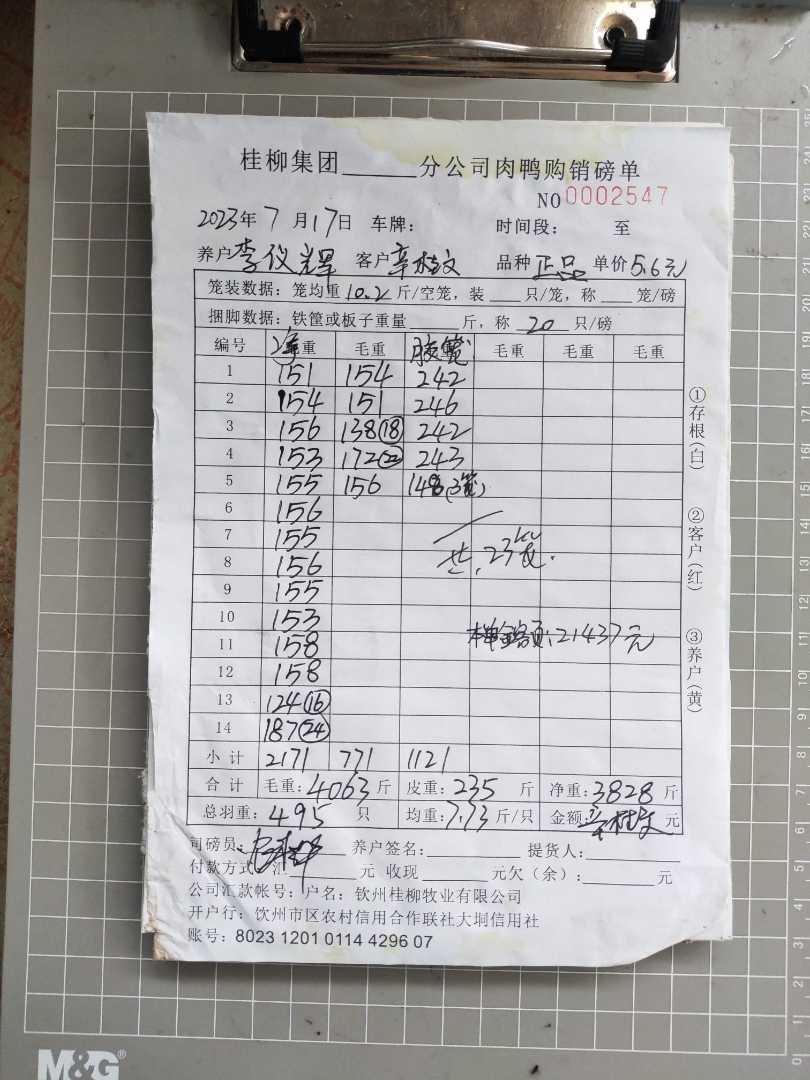 桂柳集团______分公司肉鸭购销磅单
NO 0002547
2023年 7 月 17日 车牌： 时间段： 至
养户 李仪辉 客户 辛桂文 品种 正品 单价 5.6元
笼装数据：笼均重 10.2 斤/空笼，装 ___ 只/笼，称 ___ 笼/磅
捆脚数据：铁筐或板子重量 ______ 斤，称 20 只/磅
编号 净重 毛重 胶笼 毛重 毛重 毛重
1 151 154 242
2 154 151 246
3 156 138(18) 242
4 153 172(22) 243
5 155 156 148(3笼)
6 156
7 155
8 156
共.23笼.
9 155
10 153
11 158
本单金额：21437元
12 158
13 124(16)
14 187(24)
小计 2171 771 1121
合计 毛重：4063 斤 皮重：235 斤 净重：3828 斤
总羽重：495 只 均重：7.73 斤/只 金额：辛桂文 元
司磅员： 养户签名：________ 提货人：________
付款方式：汇________元 收现________元欠（余）：________元
公司汇款帐号：户名：钦州桂柳牧业有限公司
开户行：钦州市区农村信用合作联社大垌信用社
账号：8023 1201 0114 4296 07
①存根（白）
②客户（红）
③养户（黄）
M&G®